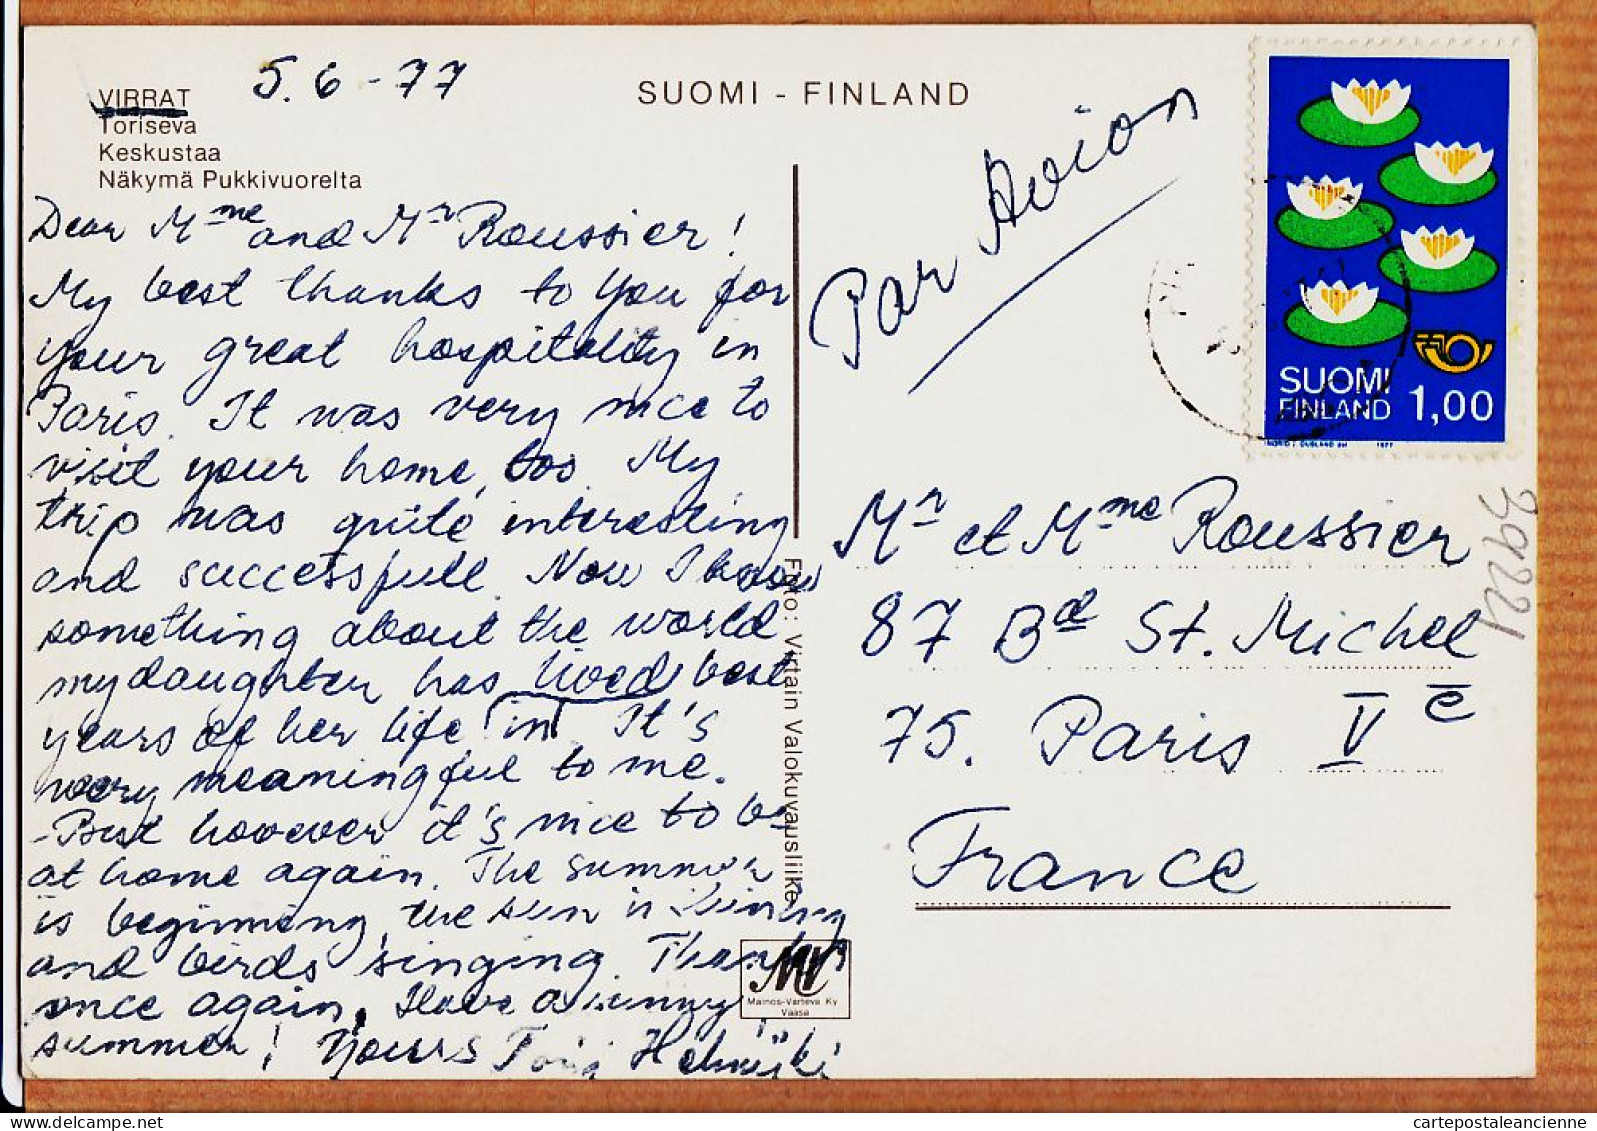 VIRRAT
Toriseva
Keskustaa
Näkymä Pukkivuorelta
5.6-77
SUOMI - FINLAND
Dear Mme and Mr Roussier!
My best thanks to you for
your great hospitality in
Paris. It was very nice to
visit your home, too. My
trip was quite interesting
and successfull. Now I know
something about the world
my daughter has lived best
years of her life in. It's
very meaningful to me.
-But however it's nice to be
at home again. The summer
is beginning, the sun is shining
and birds singing. Thanks
once again. Have a sunny
summer! Yours
Par Avion
SUOMI
FINLAND 1,00
1977
Mr et Mme Roussier
87 Bd St. Michel
75. Paris Ve
France
39221
Foto: Virtain Valokuvausliike
MV
Mainos-Varteva Ky
Vaasa
cartepostaleancienne